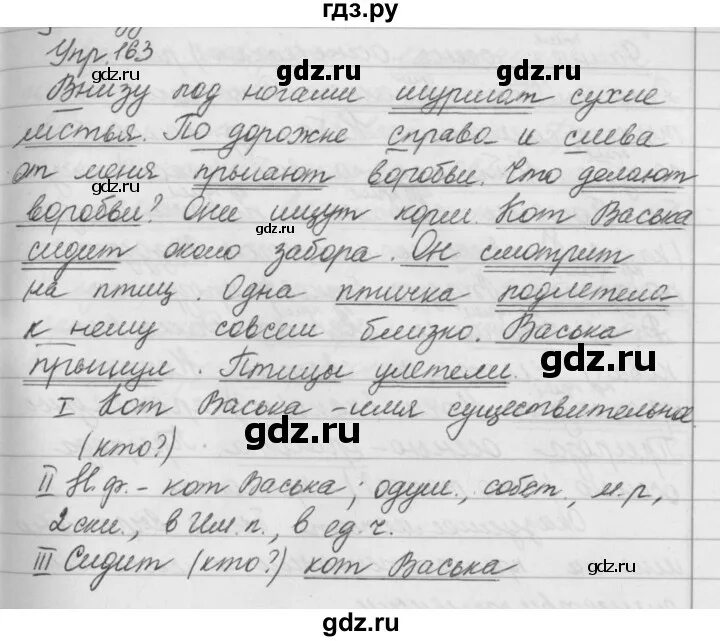 гдз.ру
Упр. 163
gdz.ru gdz.ru
Внизу под ногами шуршат сухие
листья. По дорожке справа и слева
от меня прыгают воробьи. Что делают
gdz.ru
воробьи? Они ищут корм. Кот Васька
gdz.ru
сидит около забора. Он смотрит
на птиц. Одна птичка подлетела
к нему совсем близко. Васька
прыгнул. Птицы улетели.
gdz.ru
I Кот Васька - имя существительное.
gdz.ru
(кто?)
II Н.ф. - кот Васька; одуш., собст, м.р,
2 скл., в Им.п., в ед.ч.
III Сидит (кто?) кот Васька
gdz.ru gdz.ru